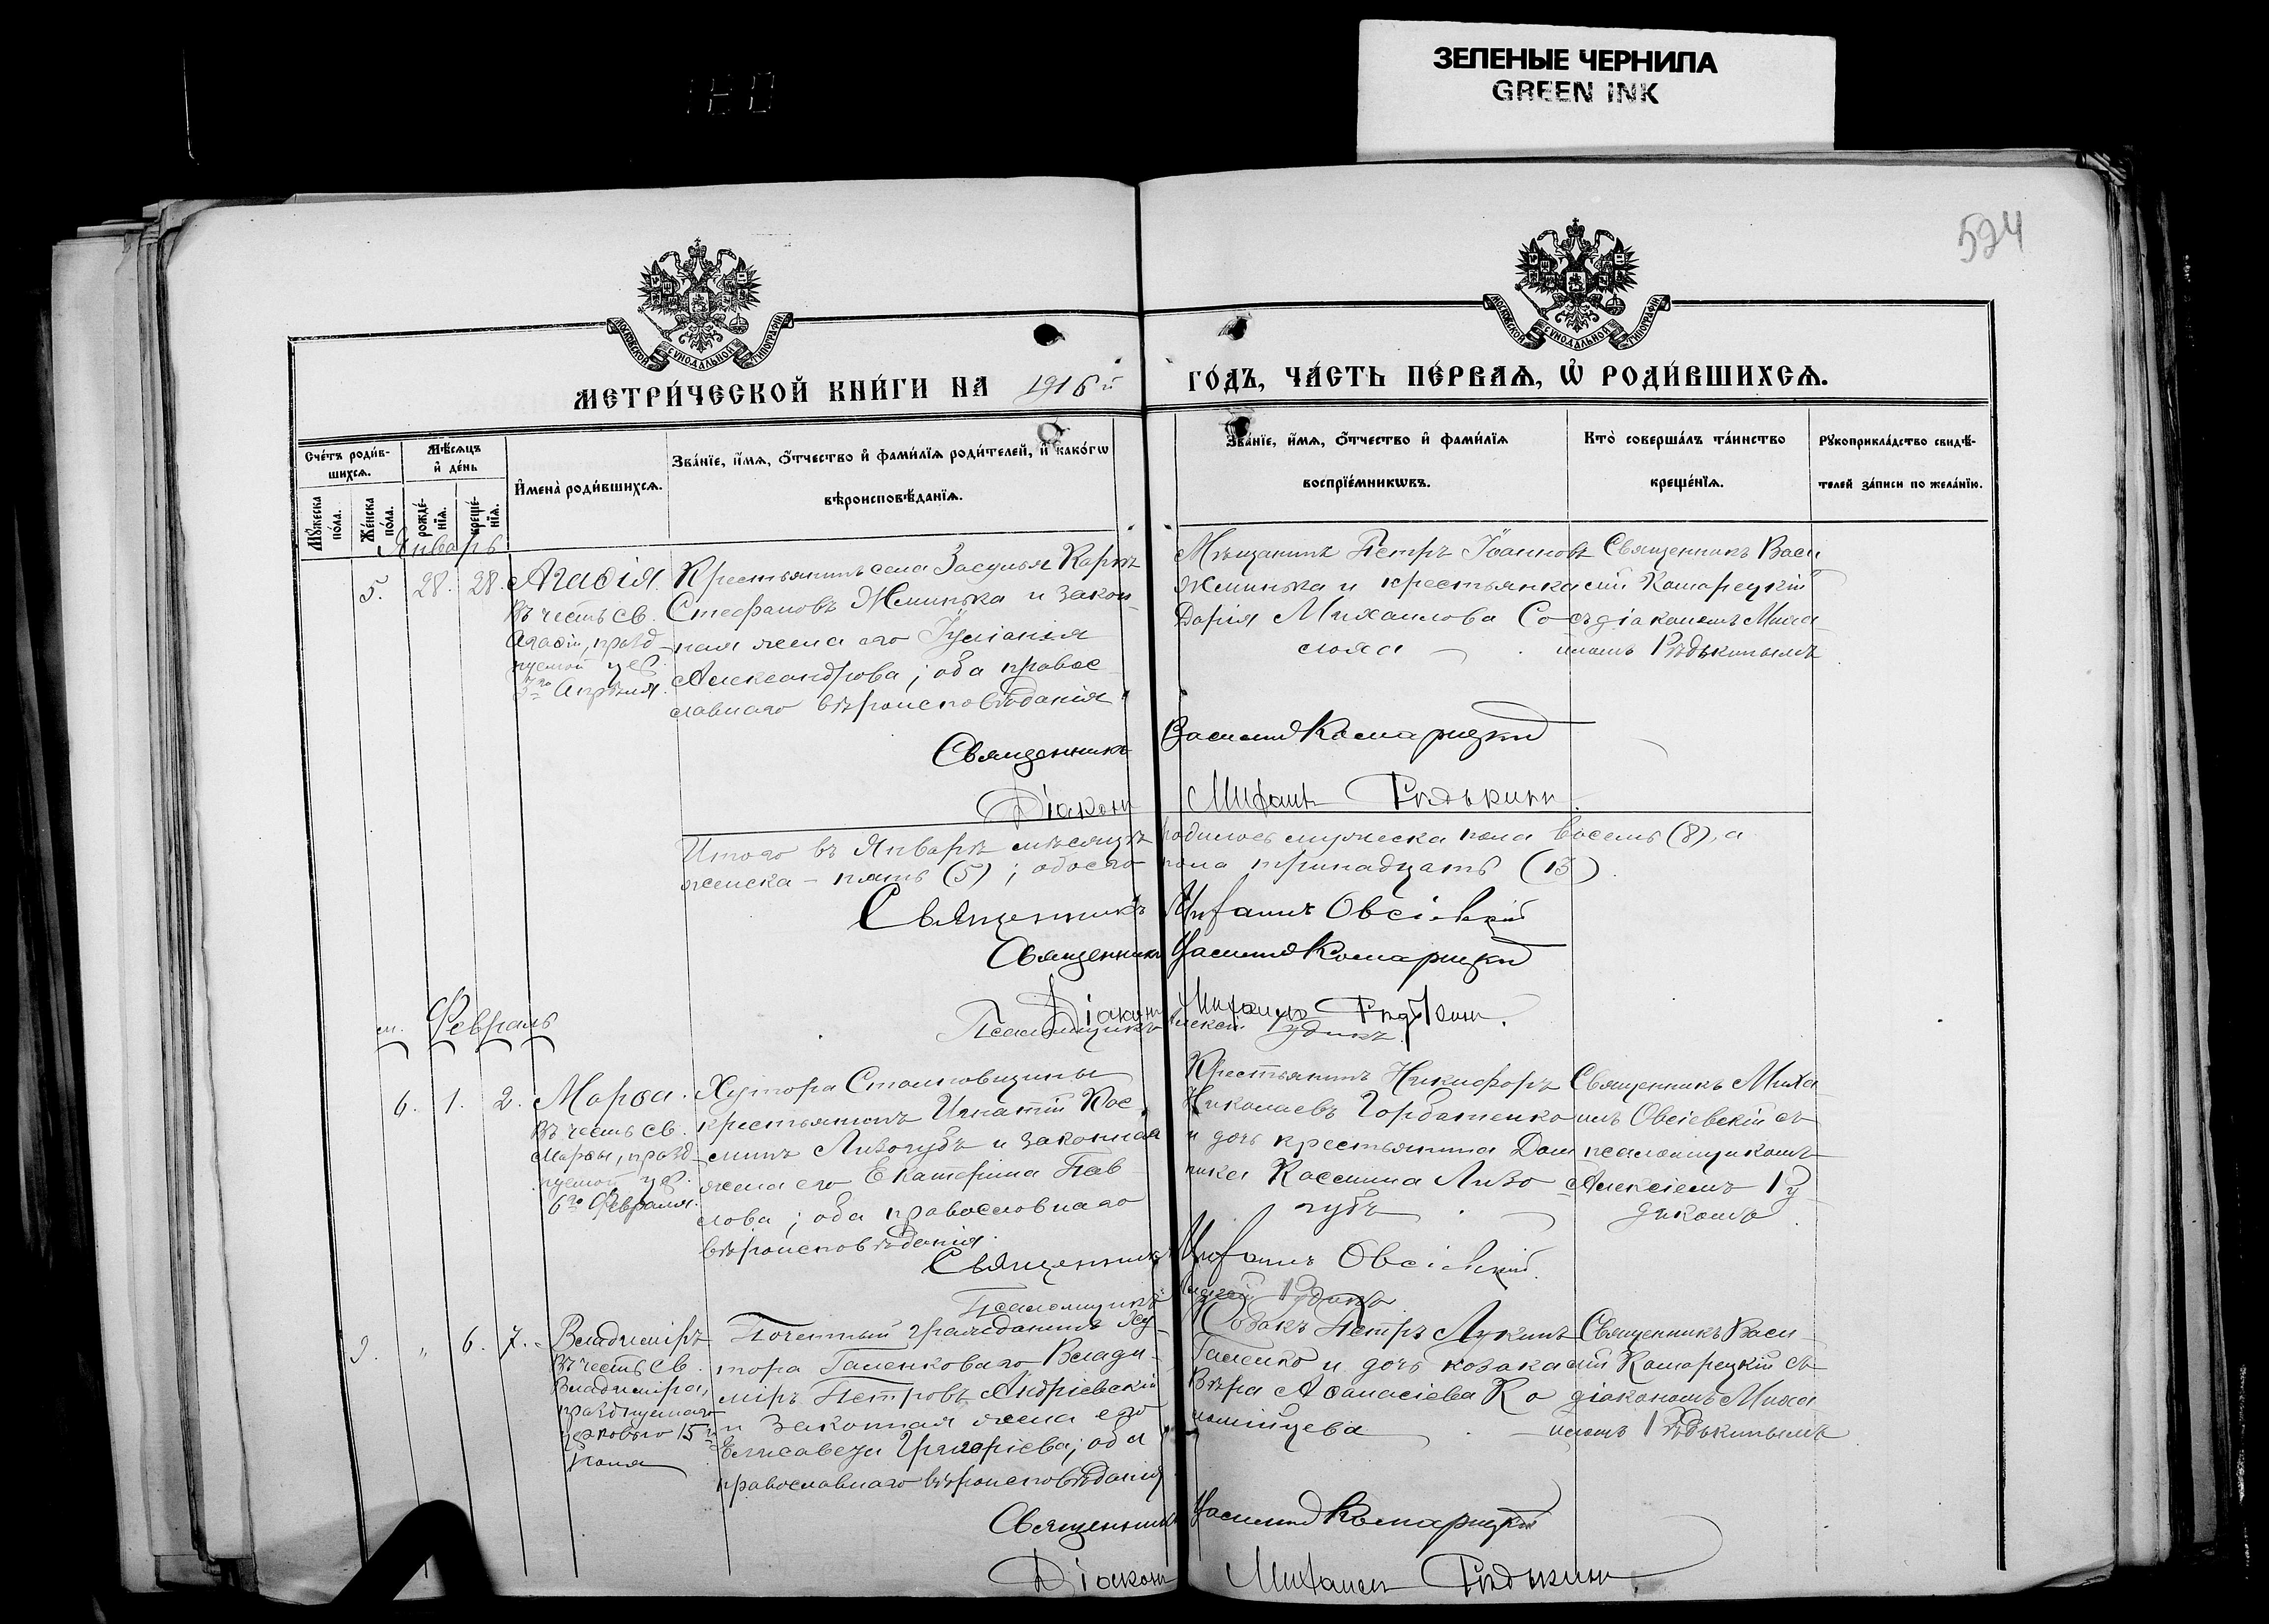 ЗЕЛЕНЫЕ ЧЕРНИЛА
GREEN INK
524
МОСКОВСКОЙ СѴНОДАЛЬНОЙ ТИПОГРАФІИ
МОСКОВСКОЙ СѴНОДАЛЬНОЙ ТИПОГРАФІИ
МЕТРИ́ЧЕСКОЙ КНИ́ГИ НА 1916й ГО́ДЪ, ЧА́СТЬ ПЕ́РВАѦ, Ѡ҆ РОДИ́ВШИХСѦ.
Сче́тъ роди́в-
шихсѧ.
Мꙋ́жеска по́ла.
Же́нска по́ла.
Мѣ́сѧцъ
и҆ де́нь
рожде́-
нїѧ.
креще́-
нїѧ.
И҆мена̀ роди́вшихсѧ.
Зва́нїе, и҆́мѧ, ѻ҆́тчество и҆ фами́лїѧ роди́телей, и҆ како́гѡ
вѣроисповѣ́данїѧ.
Зва́нїе, и҆́мѧ, ѻ҆́тчество и҆ фами́лїѧ
воспрїе́мникѡвъ.
Кто̀ соверша́лъ та́инство
креще́нїѧ.
Рꙋкоприкла́дство свидѣ́-
телей за́писи по жела́нїю.
Январь
5. 28. 28. Агаѳія
Въ честь св.
Агаѳіи, празд-
нуемой цер.
Апрѣля.
Крестьянинъ села Засулья Карпъ
Стефановъ Жминька и закон-
ная жена его Іуліанія
Александрова; оба правос-
лавнаго вѣроисповѣданія
Мѣщанинъ Петръ Іоанновъ
Жминька и крестьянка
Дарія Михаилова Со-
Священникъ Васи-
лій Комарецкій
съ діакономъ Миха-
иломъ Рѣдькинымъ
Священникъ Василий Комарецкий
Діаконъ Михаилъ Рѣдькинъ.
Итого въ Январѣ мѣсяцѣ родилось мужеска пола восемь (8), а
женска – пять (5); обоего пола тринадцать (13).
Священникъ Михаилъ Овсіевскій
Священникъ Василий Комарецкий
Діаконъ Михаилъ Рѣдькинъ.
Псаломщикъ Алексій Рудикъ.
Февраль
6. 1. 2. Марѳа.
Въ честь св.
Марѳы, празд-
нуемой цер.
6го Февраля.
Хутора
крестьянинъ Игнатій Кос-
минъ Лизогубъ и законная
жена его Екатерина Пав-
лова; оба православнаго
вѣроисповѣданія.
Крестьянинъ Никифоръ
Николаевъ Горбатенко
и дочь крестьянина
Космина Лизо-
губъ
Священникъ Миха-
илъ Овсіевскій съ
псаломщикомъ
Алексіемъ Ру-
дикомъ.
Священникъ Михаилъ Овсіевскій.
Псаломщикъ Алексій Рудикъ
9. " 6. 7. Владиміръ
Въ честь св.
Владиміра,
празднуемаго
церковью 15го
Іюля
Почетный гражданинъ ху-
тора Галенковаго Влади-
міръ Петровъ Андріевскій
и законная жена его
Елисавета Григоріева; оба
православнаго вѣроисповѣданія
Козакъ Петръ Лукинъ
Галенко и дочь козака
Вѣра Аѳанасіева Ко-
Священникъ Васи-
лій Комарецкій съ
діакономъ Миха-
иломъ Рѣдькинымъ
Священникъ Василий Комарецкий
Діаконъ Михаилъ Рѣдькинъ.